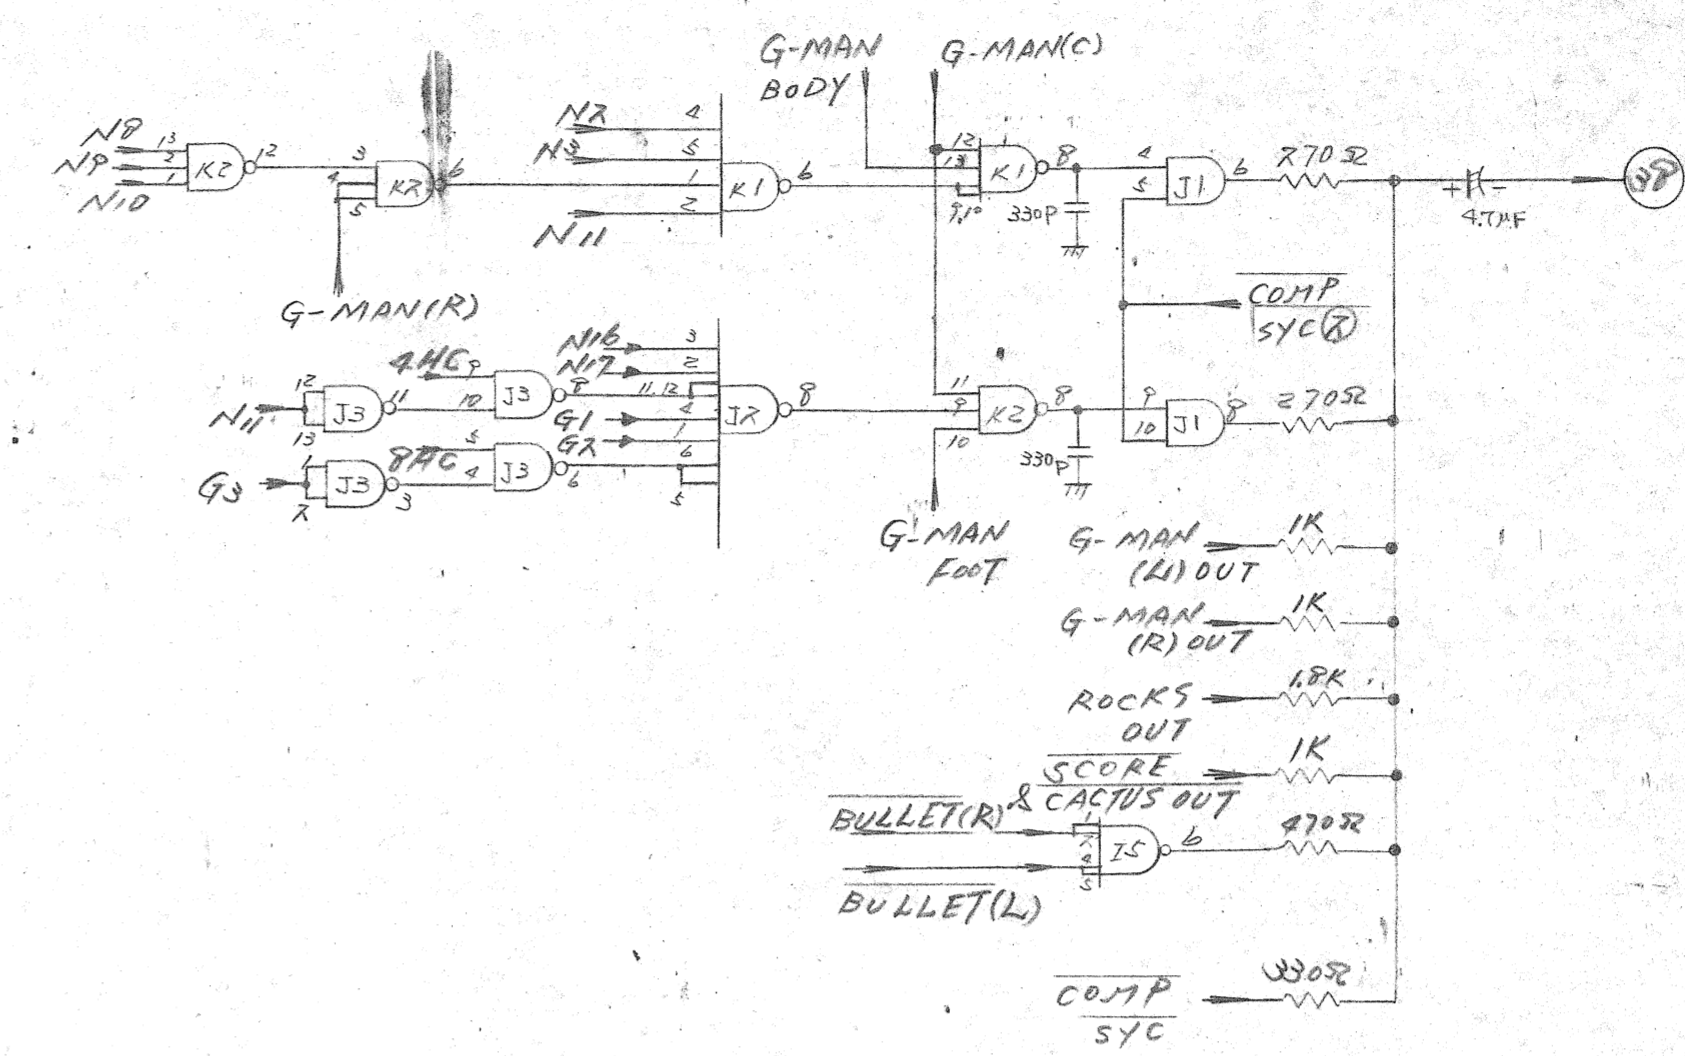 G-MAN
BODY
G-MAN(C)
N8 13
N9 2
N10 1
K2 12
3
4
5
K2 6
G-MAN(R)
N2 4
N3 5
1
N11 2
K1 6
12
13
9,10
K1 8
330P
4
5
J1 6
270Ω
+ -
4.7μF
38
COMP
SYC(2)
N11
12
13
J3 11
4HC 9
10
J3 8
G3
1
2
J3 3
8HC 5
4
J3 6
N16 3
N17 2
11,12
G1 4
G2 1
6
5
J2 8
11
9
10
K2 8
330P
G-MAN
FOOT
9
10
J1 8
270Ω
G-MAN
(L) OUT
1K
G-MAN
(R) OUT
1K
ROCKS
OUT
1.8K
SCORE
& CACTUS OUT
1K
BULLET(R)
BULLET(L)
1
2
4
5
I5 6
470Ω
COMP
SYC
330Ω